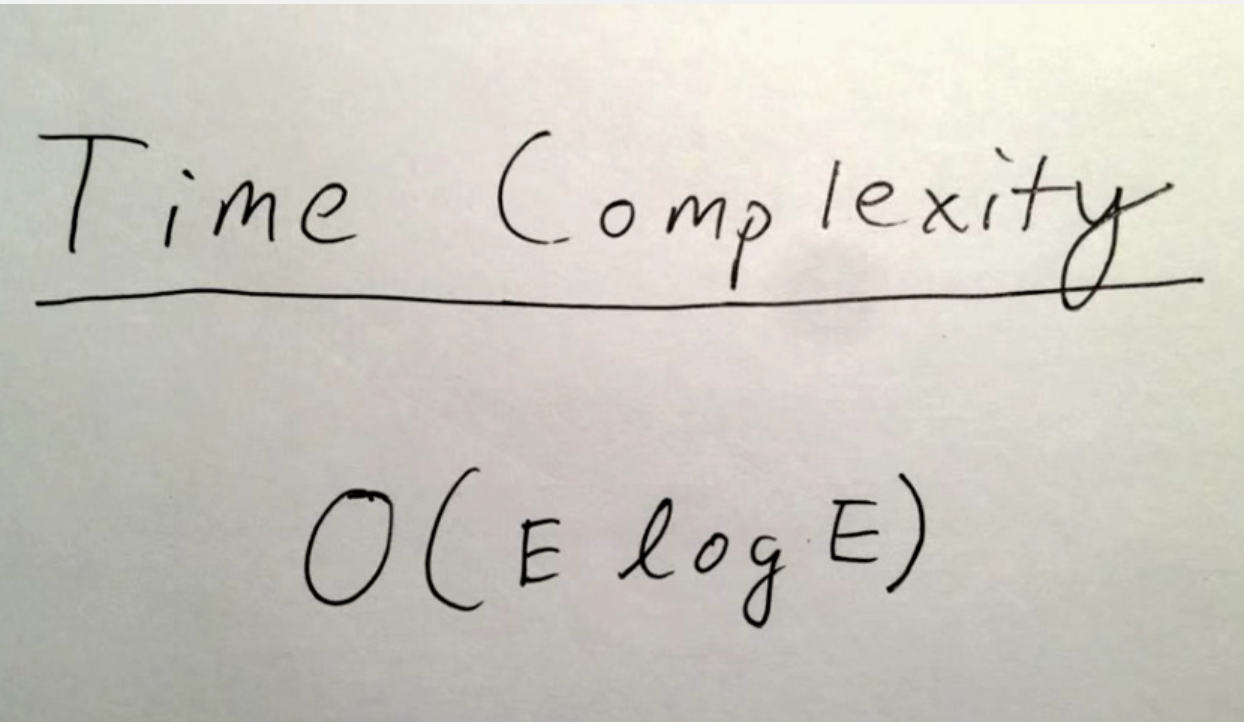 Time Complexity
O(E log E)